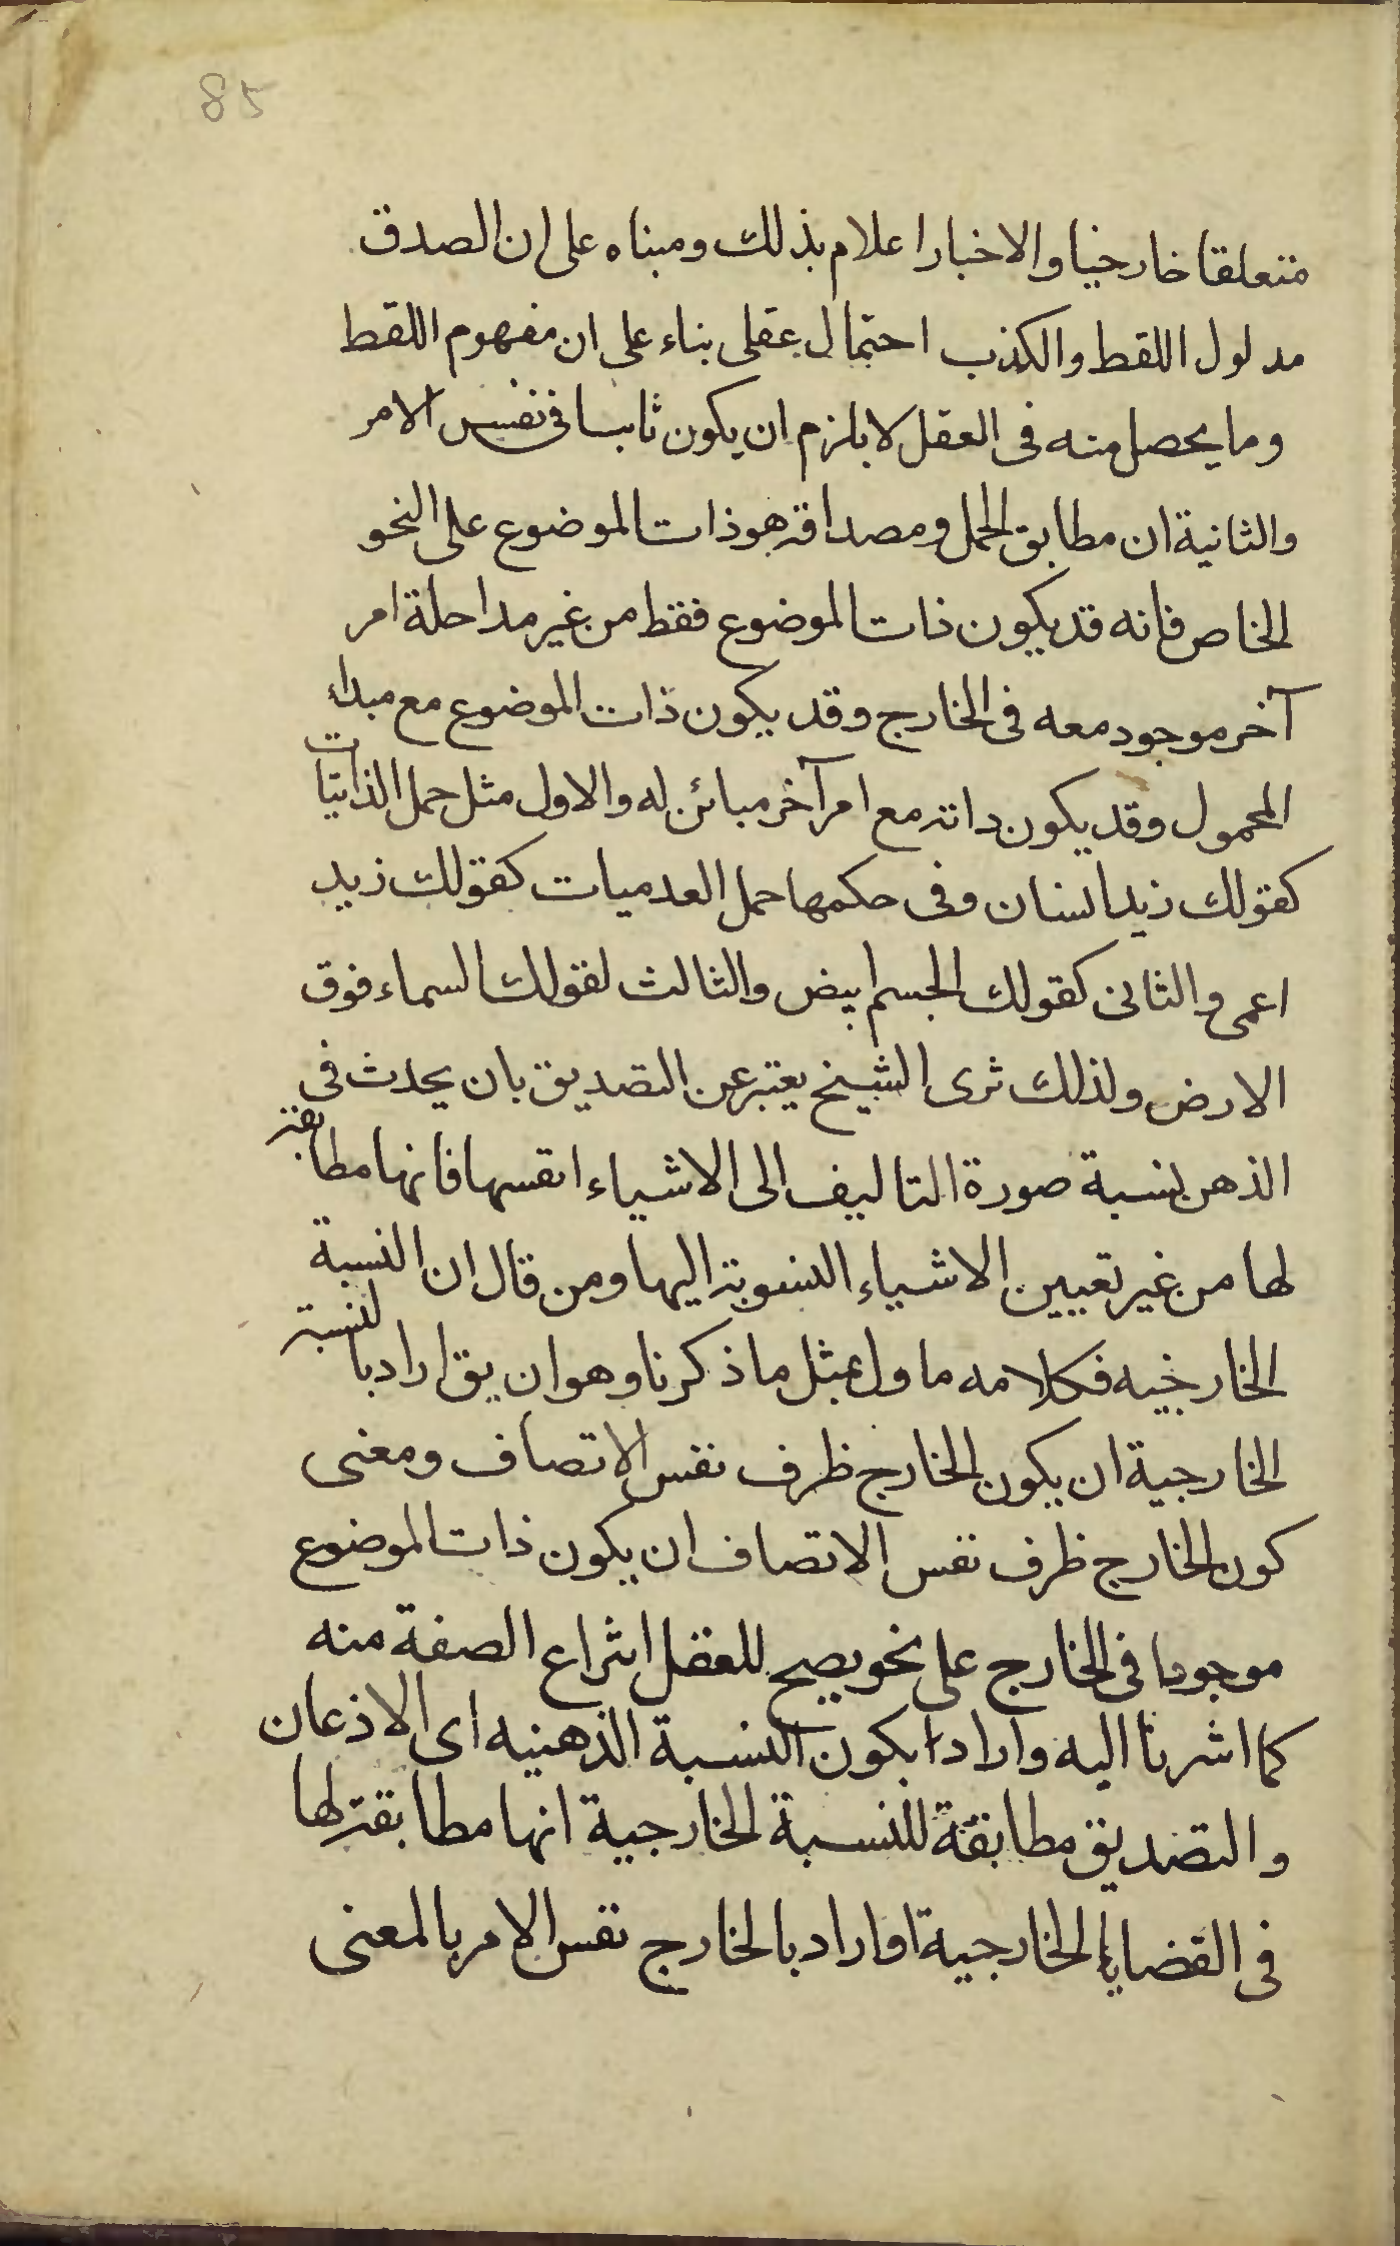 85
متعلقا خارجيا والاخبار اعلام بذلك ومبناه على ان الصدق
مدلول اللقط والكذب احتمال عقلى بناء على ان مفهوم اللقط
وما يحصل منه فى العقل لا يلزم ان يكون ثابتا فى نفس الامر
والثانية ان مطابق الحمل ومصداقه هو ذات الموضوع على النحو
الخاص فانه قد يكون ذات الموضوع فقط من غير مداحلة امر
آخر موجود معه فى الخارج وقد يكون ذات الموضوع مع مبداء
المحمول وقد يكون داته مع امر آخر مبائن له والاول مثل حمل الذاتيات
كقولك زيد انسان وفى حكمها حمل العدميات كقولك زيد
اعمى والثانى كقولك الجسم ابيض والثالث لقولك السماء فوق
الارض ولذلك ترى الشيخ يعتبر عن التصديق بان يحدث فى
الذهن نسبة صورة التاليف الى الاشياء انفسها فانها مطابقة
لها من غير تعيين الاشياء النسوبة اليها ومن قال ان النسبة
الخارجيه فكلامه ماول بمثل ما ذكرنا وهو ان يق اراد بالنسبة
الخارجية ان يكون الخارج ظرف نفس الاتصاف ومعنى
كون الخارج ظرف نفس الاتصاف ان يكون ذات الموضوع
موجودا فى الخارج على نحو يصح للعقل انتزاع الصفة منه
كما اشرنا اليه واراد بكون النسبة الذهنيه اى الاذعان
والتصديق مطابقة للنسبة الخارجية انها مطابقة لها
فى القضايا الخارجية او اراد بالخارج نفس الامر بالمعنى